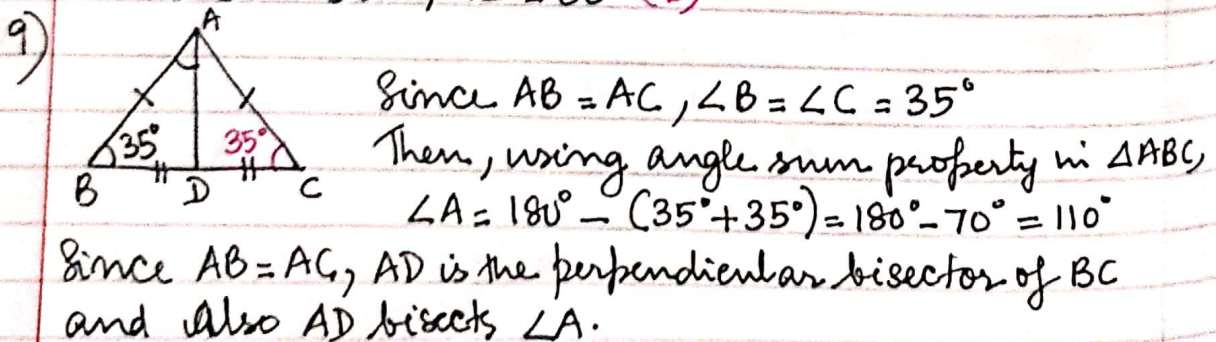 9)
A
35° 35°
B D C
Since AB = AC, ∠B = ∠C = 35°
Then, using angle sum property in △ABC,
∠A = 180° - (35° + 35°) = 180° - 70° = 110°
Since AB = AC, AD is the perpendicular bisector of BC
and also AD bisects ∠A.